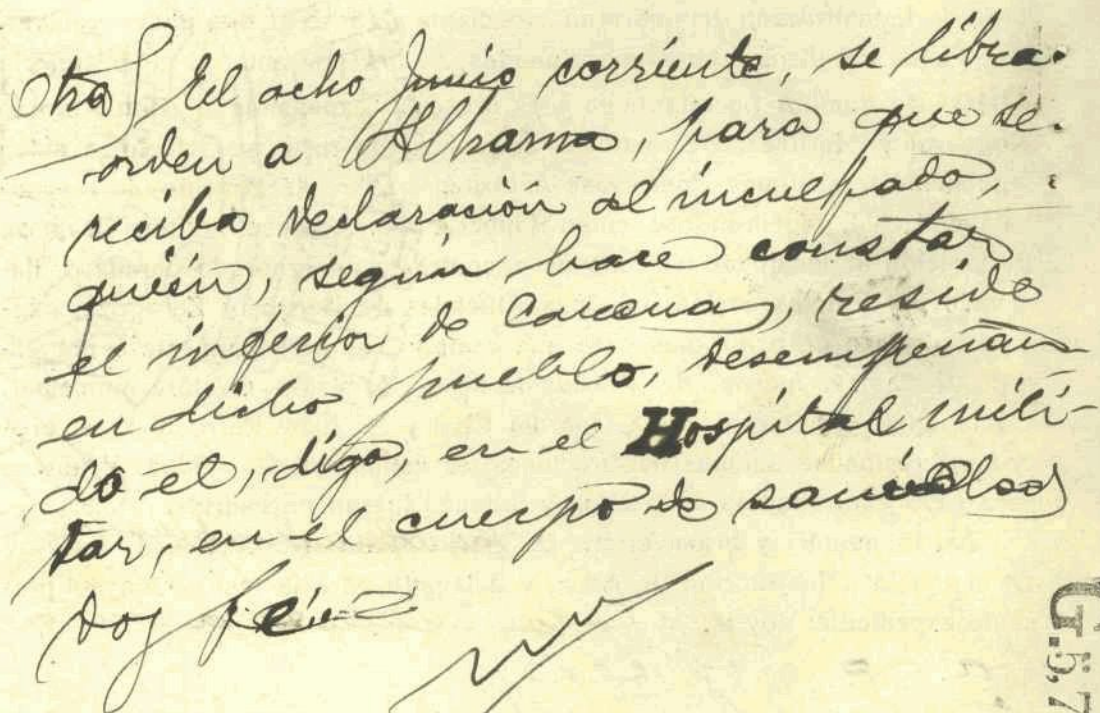 Otra} El ocho Junio corriente, se libra
orden a Alhama, para que se
reciba declaración al inculpado,
quién, según hace constar
el inferior de Caravaca, reside
en dicho pueblo, desempeñan-
do el, digo, en el Hospital mili-
tar, en el cuerpo de sanidad
doy fé
G.5,7